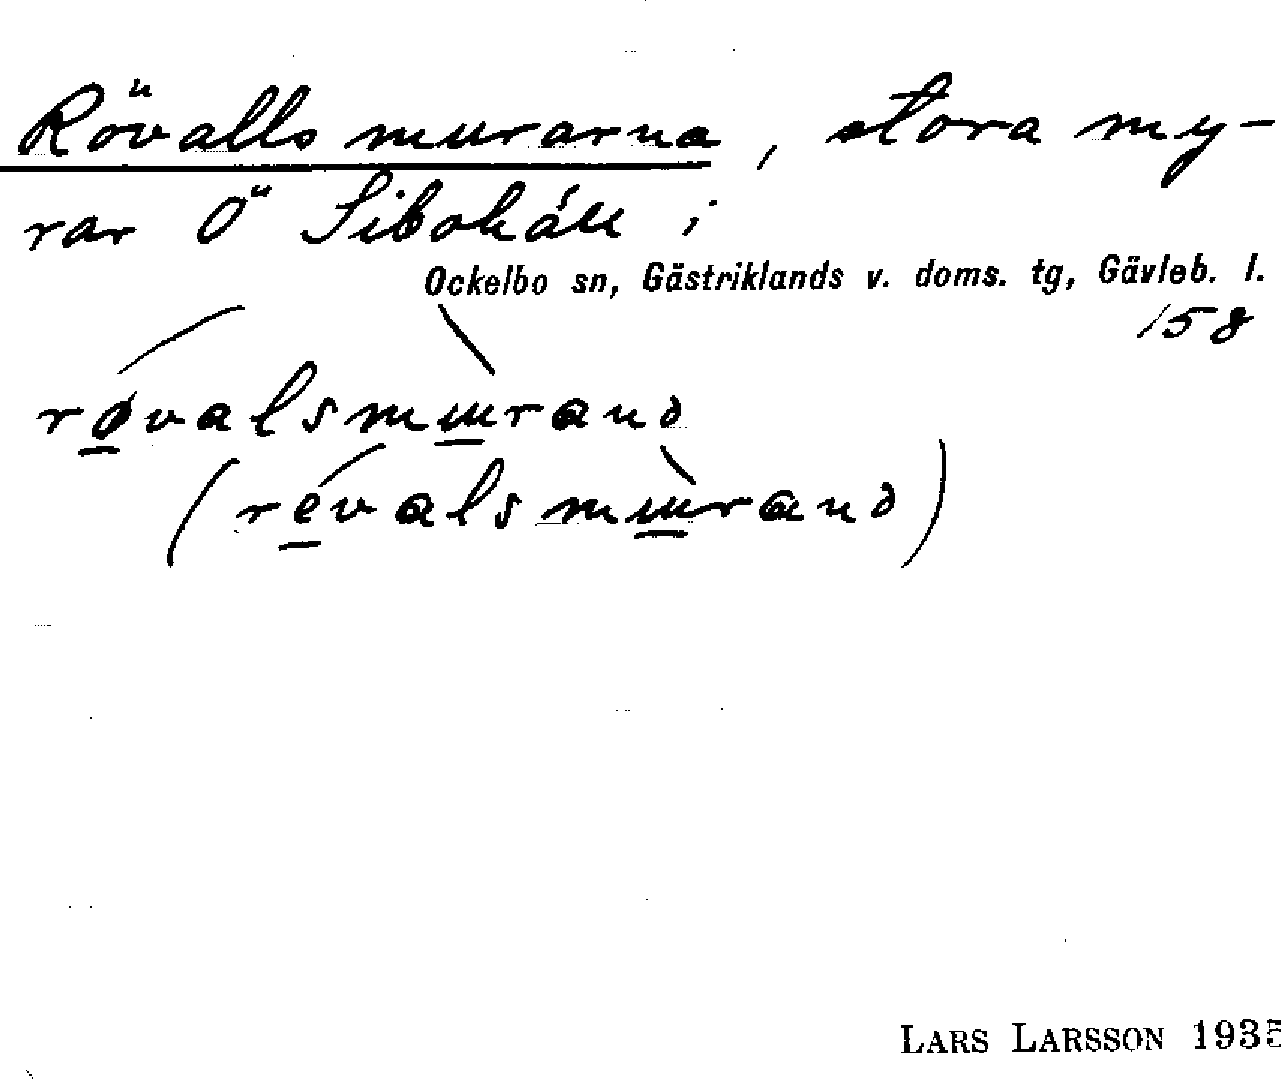 Rövallsmurarna, stora my-
rar Ö Sibohåll i
Ockelbo sn, Gästriklands v. doms. tg, Gävleb. l.
158
røvalsmɯranə
(revalsmɯranə)
LARS LARSSON 1935